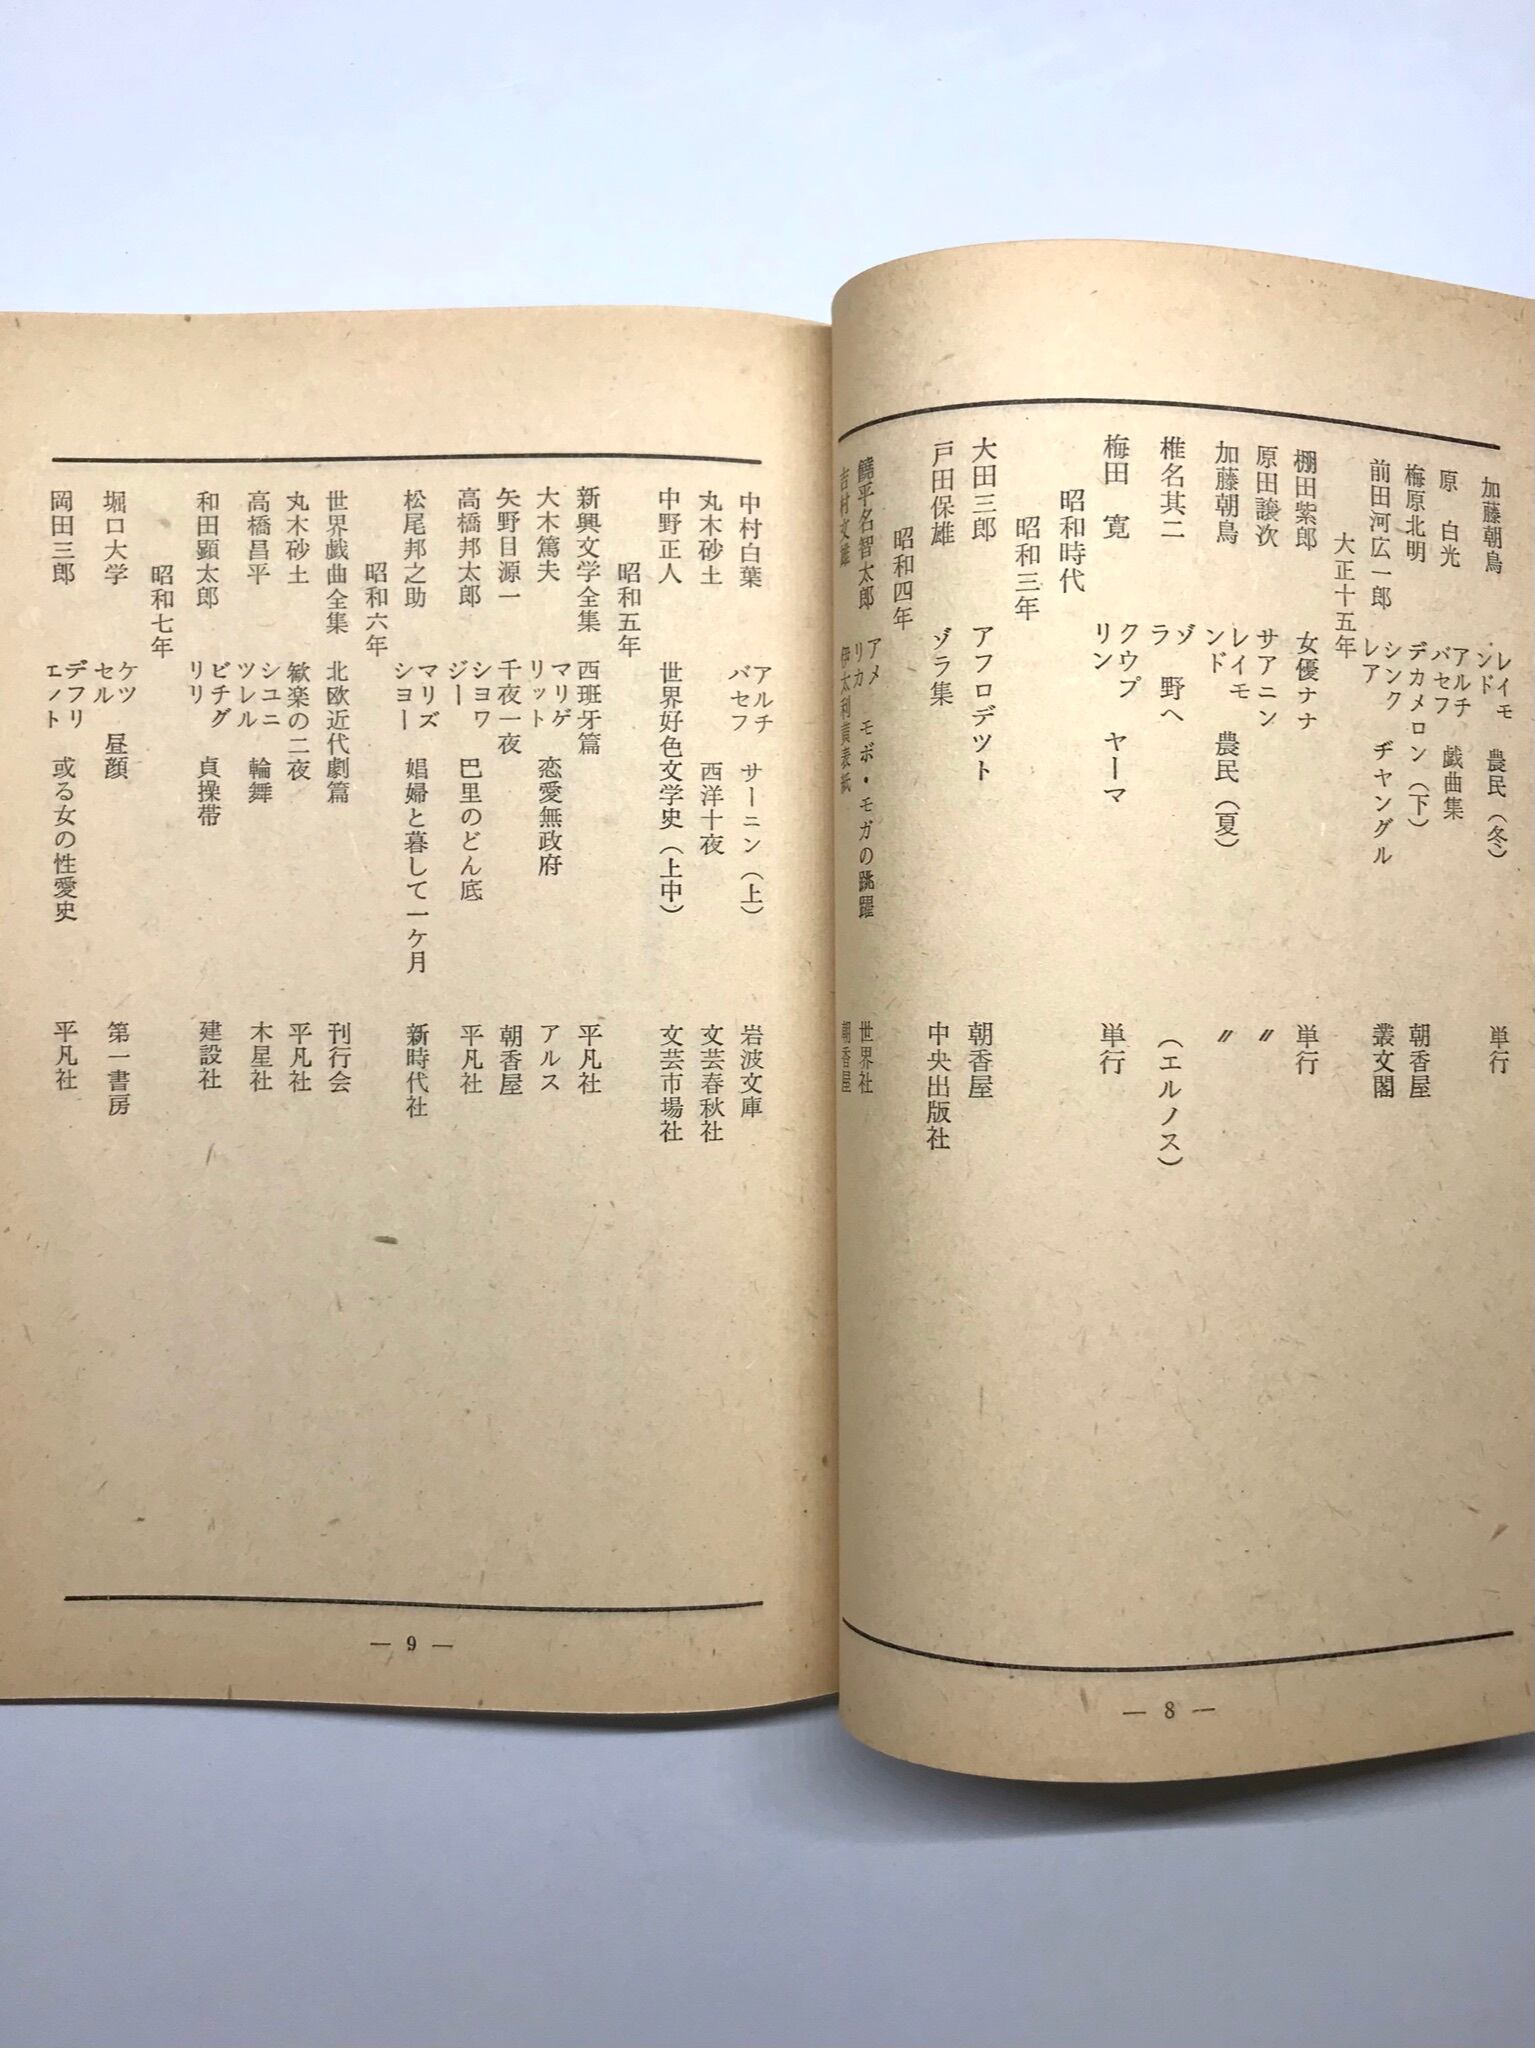 加藤朝鳥 レイモンド 農民（冬） 単行
原　白光 アルチバセフ 戯曲集
梅原北明 デカメロン（下） 朝香屋
前田河広一郎 シンクレア ヂャングル 叢文閣
大正十五年
棚田紫郎 女優ナナ 単行
原田譲次 サアニン 〃
加藤朝鳥 レイモンド 農民（夏） 〃
椎名其二 ゾラ 野へ （エルノス）
梅田　寛 クウプリン ヤーマ 単行
昭和時代
昭和三年
大田三郎 アフロデツト 朝香屋
戸田保雄 ゾラ集 中央出版社
昭和四年
饒平名智太郎 アメリカ モボ・モガの跳躍 世界社
吉村文雄 伊太利黄表紙 朝香屋
— 8 —
中村白葉 アルチバセフ サーニン（上） 岩波文庫
丸木砂土 西洋十夜 文芸春秋社
中野正人 世界好色文学史（上中） 文芸市場社
昭和五年
新興文学全集 西班牙篇 平凡社
大木篤夫 マリゲリット 恋愛無政府 アルス
矢野目源一 千夜一夜 朝香屋
高橋邦太郎 シヨワジー 巴里のどん底 平凡社
松尾邦之助 マリズシヨー 娼婦と暮して一ケ月 新時代社
昭和六年
世界戯曲全集 北欧近代劇篇 刊行会
丸木砂土 歓楽の二夜 平凡社
高橋昌平 シユニツレル 輪舞 木星社
和田顕太郎 ビチグリリ 貞操帯 建設社
昭和七年
堀口大学 ケツセル 昼顔 第一書房
岡田三郎 デフリエノト 或る女の性愛史 平凡社
— 9 —